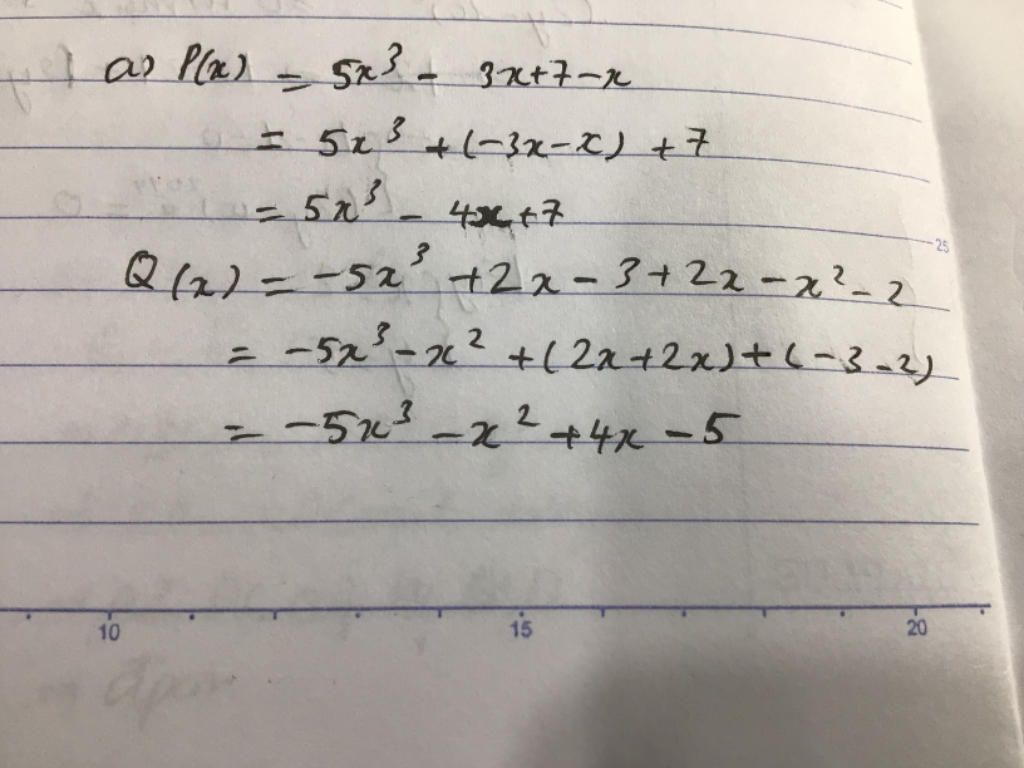 a) P(x) = 5x³ - 3x+7-x
= 5x³ +(-3x-x) +7
= 5x³ - 4x+7
25
Q(x) = -5x³ +2x-3+2x-x²-2
= -5x³-x² +(2x+2x)+(-3-2)
= -5x³ -x² +4x -5
10 15 20